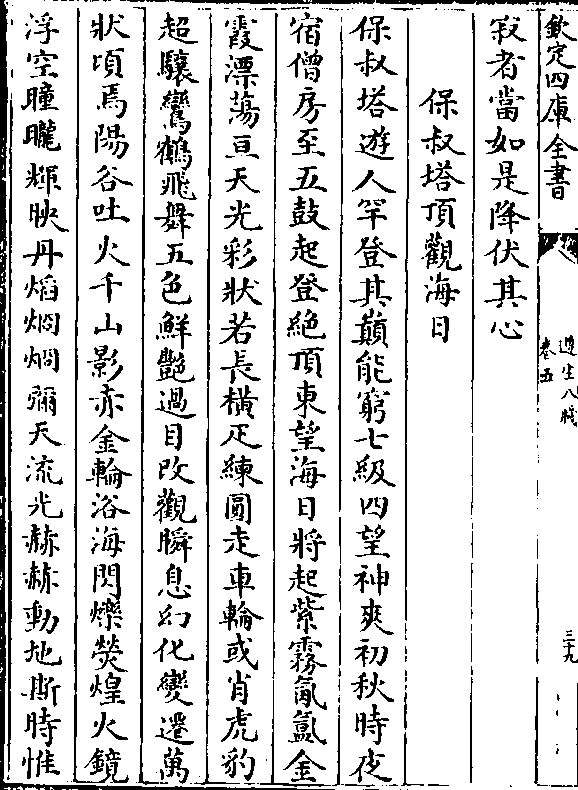 欽定四庫全書
遵生八牋
卷五
三十九
寂者當如是降伏其心
保叔塔頂觀海日
保叔塔遊人罕登其巔能窮七級四望神爽初秋時夜
宿僧房至五鼓起登絶頂東望海日將起紫霧氤氳金
霞漂蕩亘天光彩狀若長橫疋練圓走車輪或肖虎豹
超驤鸞鶴飛舞五色鮮艶過目改觀瞬息幻化變遷萬
狀頃焉陽谷吐火千山影赤金輪浴海閃爍熒煌火鏡
浮空曈曨輝映丹焰炯炯彌天流光赫赫動地斯時惟